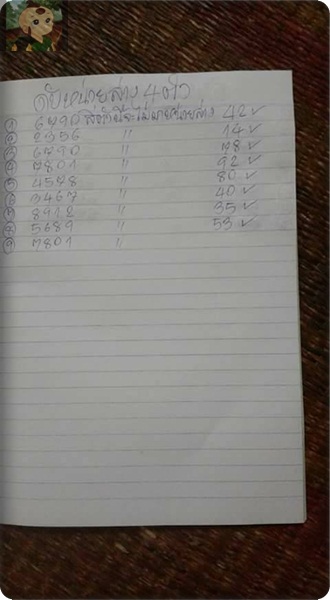 ดับหน่วยล่าง 4 ตัว
① 6790 สี่ตัวนี้จะไม่มาหน่วยล่าง 42✓
② 2356 " 14✓
③ 6790 " 78✓
④ 7801 " 92✓
⑤ 4578 " 80✓
⑥ 3467 " 40✓
⑦ 8912 " 35✓
⑧ 5689 " 53✓
⑨ 7801 "